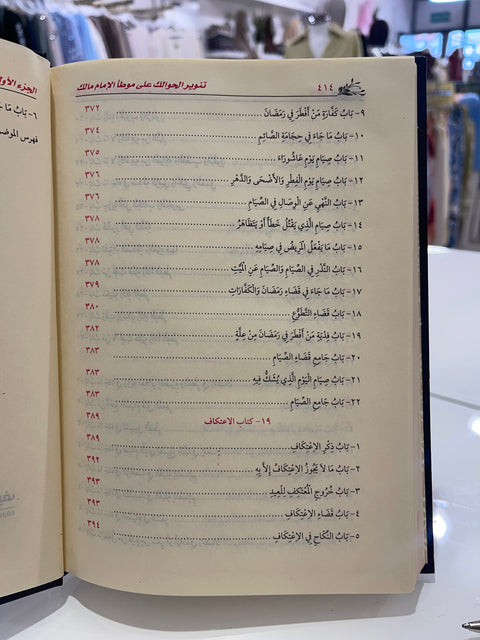 ٤١٤ تنوير الحوالك على موطأ الإمام مالك
٩- بَابُ كَفَّارَةِ مَنْ أَفْطَرَ فِي رَمَضَانَ ٣٧٢
١٠- بَابُ مَا جَاءَ فِي حِجَامَةِ الصَّائِمِ ٣٧٤
١١- بَابُ صِيَامِ يَوْمِ عَاشُورَاءَ ٣٧٥
١٢- بَابُ صِيَامِ يَوْمِ الْفِطْرِ وَالأَضْحَى وَالدَّهْرِ ٣٧٦
١٣- بَابُ النَّهْيِ عَنِ الْوِصَالِ فِي الصِّيَامِ ٣٧٦
١٤- بَابُ صِيَامِ الَّذِي يَقْتُلُ خَطَأً أَوْ يَتَظَاهَرُ ٣٧٨
١٥- بَابُ مَا يَفْعَلُ الْمَرِيضُ فِي صِيَامِهِ ٣٧٨
١٦- بَابُ النَّذْرِ فِي الصِّيَامِ وَالصِّيَامِ عَنِ الْمَيِّتِ ٣٧٨
١٧- بَابُ مَا جَاءَ فِي قَضَاءِ رَمَضَانَ وَالْكَفَّارَاتِ ٣٧٩
١٨- بَابُ قَضَاءِ التَّطَوُّعِ ٣٨٠
١٩- بَابُ فِدْيَةِ مَنْ أَفْطَرَ فِي رَمَضَانَ مِنْ عِلَّةٍ ٣٨٢
٢٠- بَابُ جَامِعِ قَضَاءِ الصِّيَامِ ٣٨٣
٢١- بَابُ صِيَامِ الْيَوْمِ الَّذِي يُشَكُّ فِيهِ ٣٨٣
٢٢- بَابُ جَامِعِ الصِّيَامِ ٣٨٣
١٩- كتاب الاعتكاف ٣٨٩
١- بَابُ ذِكْرِ الاِعْتِكَافِ ٣٨٩
٢- بَابُ مَا لاَ يَجُوزُ الاِعْتِكَافُ إِلاَّ بِهِ ٣٩٢
٣- بَابُ خُرُوجِ الْمُعْتَكِفِ لِلْعِيدِ ٣٩٣
٤- بَابُ قَضَاءِ الاِعْتِكَافِ ٣٩٣
٥- بَابُ النِّكَاحِ فِي الاِعْتِكَافِ ٣٩٤
الجزء الأول
٦- بَابُ مَا
فهرس